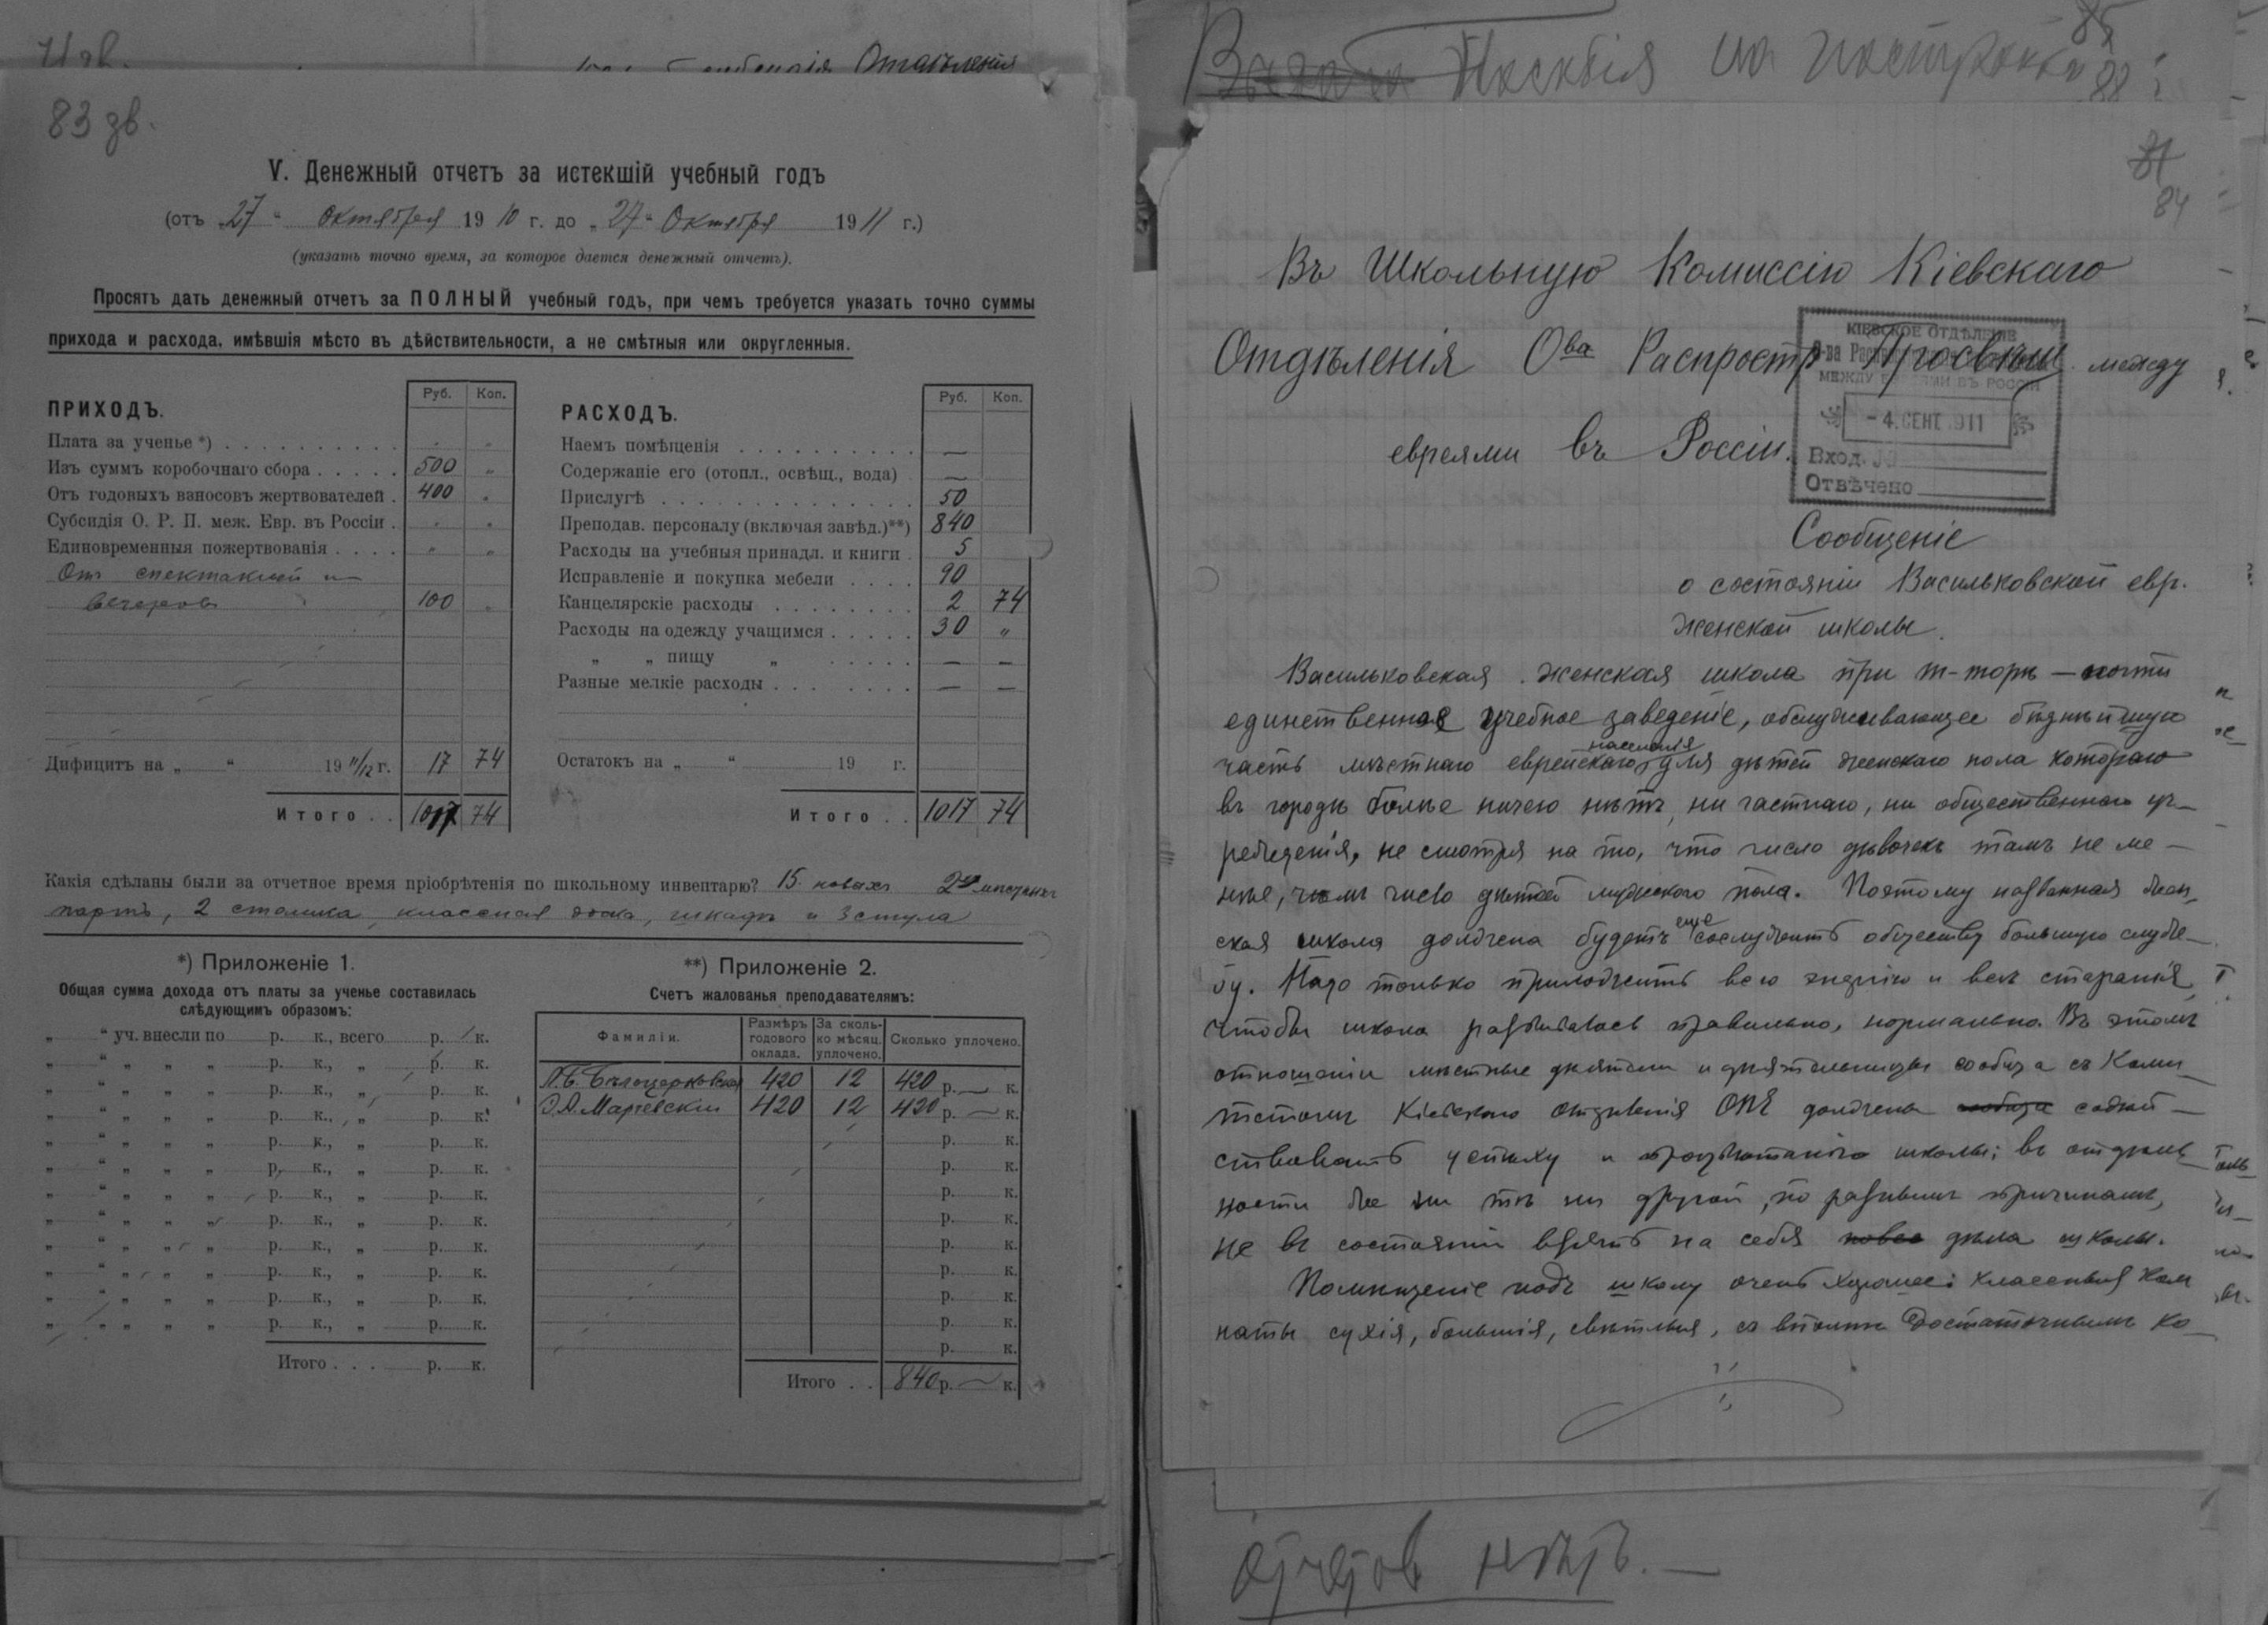 83 зв.
V. Денежный отчетъ за истекшій учебный годъ
(отъ „27“ Октября 1910 г. до „27“ Октября 1911 г.)
(указать точно время, за которое дается денежный отчетъ).
Просятъ дать денежный отчетъ за ПОЛНЫЙ учебный годъ, при чемъ требуется указать точно суммы
прихода и расхода, имѣвшія мѣсто въ дѣйствительности, а не смѣтныя или округленныя.
ПРИХОДЪ. Руб. Коп.
Плата за ученье *) . . . . . . . . . . „ „
Изъ суммъ коробочнаго сбора . . . . . 500 „
Отъ годовыхъ взносовъ жертвователей . 400 „
Субсидія О. Р. П. меж. Евр. въ Россіи . „ „
Единовременныя пожертвованія . . . . „ „
Отъ спектаклей и
вечеровъ 100 „
Дифицитъ на „ “ 19 11/12 г. 17 74
Итого . . 1017 74
РАСХОДЪ. Руб. Коп.
Наемъ помѣщенія . . . . . . . . . . . —
Содержаніе его (отопл., освѣщ., вода) . —
Прислугѣ . . . . . . . . . . . . . . 50
Преподав. персоналу (включая завѣд.)**) 840
Расходы на учебныя принадл. и книги . 5
Исправленіе и покупка мебели . . . . 90
Канцелярскіе расходы . . . . . . . . 2 74
Расходы на одежду учащимся . . . . . 30 „
„ „ пищу „ . . . . . — —
Разные мелкіе расходы . . . . . . . . — —
Остатокъ на „ “ 19 г.
Итого . . 1017 74
Какія сдѣланы были за отчетное время пріобрѣтенія по школьному инвентарю? 15 новыхъ 2хъ мѣстныхъ
партъ, 2 столика, классная доска, шкафъ и 3 стула
*) Приложеніе 1.
Общая сумма дохода отъ платы за ученье составилась
слѣдующимъ образомъ:
„ “ уч. внесли по р. к., всего р. к.
„ “ „ „ „ р. к., „ р. к.
„ “ „ „ „ р. к., „ р. к.
„ “ „ „ „ р. к., „ р. к.
„ “ „ „ „ р. к., „ р. к.
„ “ „ „ „ р. к., „ р. к.
„ “ „ „ „ р. к., „ р. к.
„ “ „ „ „ р. к., „ р. к.
„ “ „ „ „ р. к., „ р. к.
„ “ „ „ „ р. к., „ р. к.
„ “ „ „ „ р. к., „ р. к.
„ “ „ „ „ р. к., „ р. к.
Итого . . . р. к.
**) Приложеніе 2.
Счетъ жалованья преподавателямъ:
Фамиліи. Размѣръ годового оклада. За сколько мѣсяц. уплочено. Сколько уплочено.
Л. Б. Бѣлоцерковская 420 12 420 р. — к.
420 12 420 р. — к.
р. к.
р. к.
р. к.
р. к.
р. к.
р. к.
р. к.
р. к.
р. к.
Итого . . 840 р. — к.
Отдѣленія
85
88
на постройки
84
Въ Школьную Комиссію Кіевскаго
Отдѣленія Ова Распростр Просвѣщ. между
евреями въ Россіи.
КІЕВСКОЕ ОТДѢЛЕНІЕ
МЕЖДУ ЕВРЕЯМИ ВЪ РОССІИ
- 4. СЕНТ. 1911
Вход. №
Отвѣчено
Сообщеніе
о состояніи Васильковской евр.
женской школы.
Васильковская женская школа при т-торѣ — почти
единственное учебное заведеніе, обслуживающее бѣднѣйшую
часть мѣстнаго еврейскаго населенія, для дѣтей женскаго пола котораго
въ городѣ болѣе ничего нѣтъ, ни частнаго, ни общественнаго уч-
режденія, не смотря на то, что число дѣвочекъ тамъ не ме-
нѣе, чѣмъ число дѣтей мужского пола. Поэтому названная жен-
ская школа должна будетъ еще сослужить обществу большую служ-
бу. Надо только приложить всю энергію и всѣ старанія,
чтобы школа развивалась правильно, нормально. Въ этомъ
отношеніи мѣстные дѣятели и дѣятельницы сообща съ Коми-
тетомъ Кіевскаго отдѣленія ОПЕ должны сообща содѣй-
ствовать успѣху и процвѣтанію школы; въ отдѣль-
ности же ни тѣ ни другой, по разнымъ причинамъ,
не въ состояніи взять на себя дѣла школы.
Помѣщеніе подъ школу очень хорошее: классныя ком
наты сухія, большія, свѣтлыя, со вполнѣ достаточнымъ ко-
отчетов нѣтъ. —